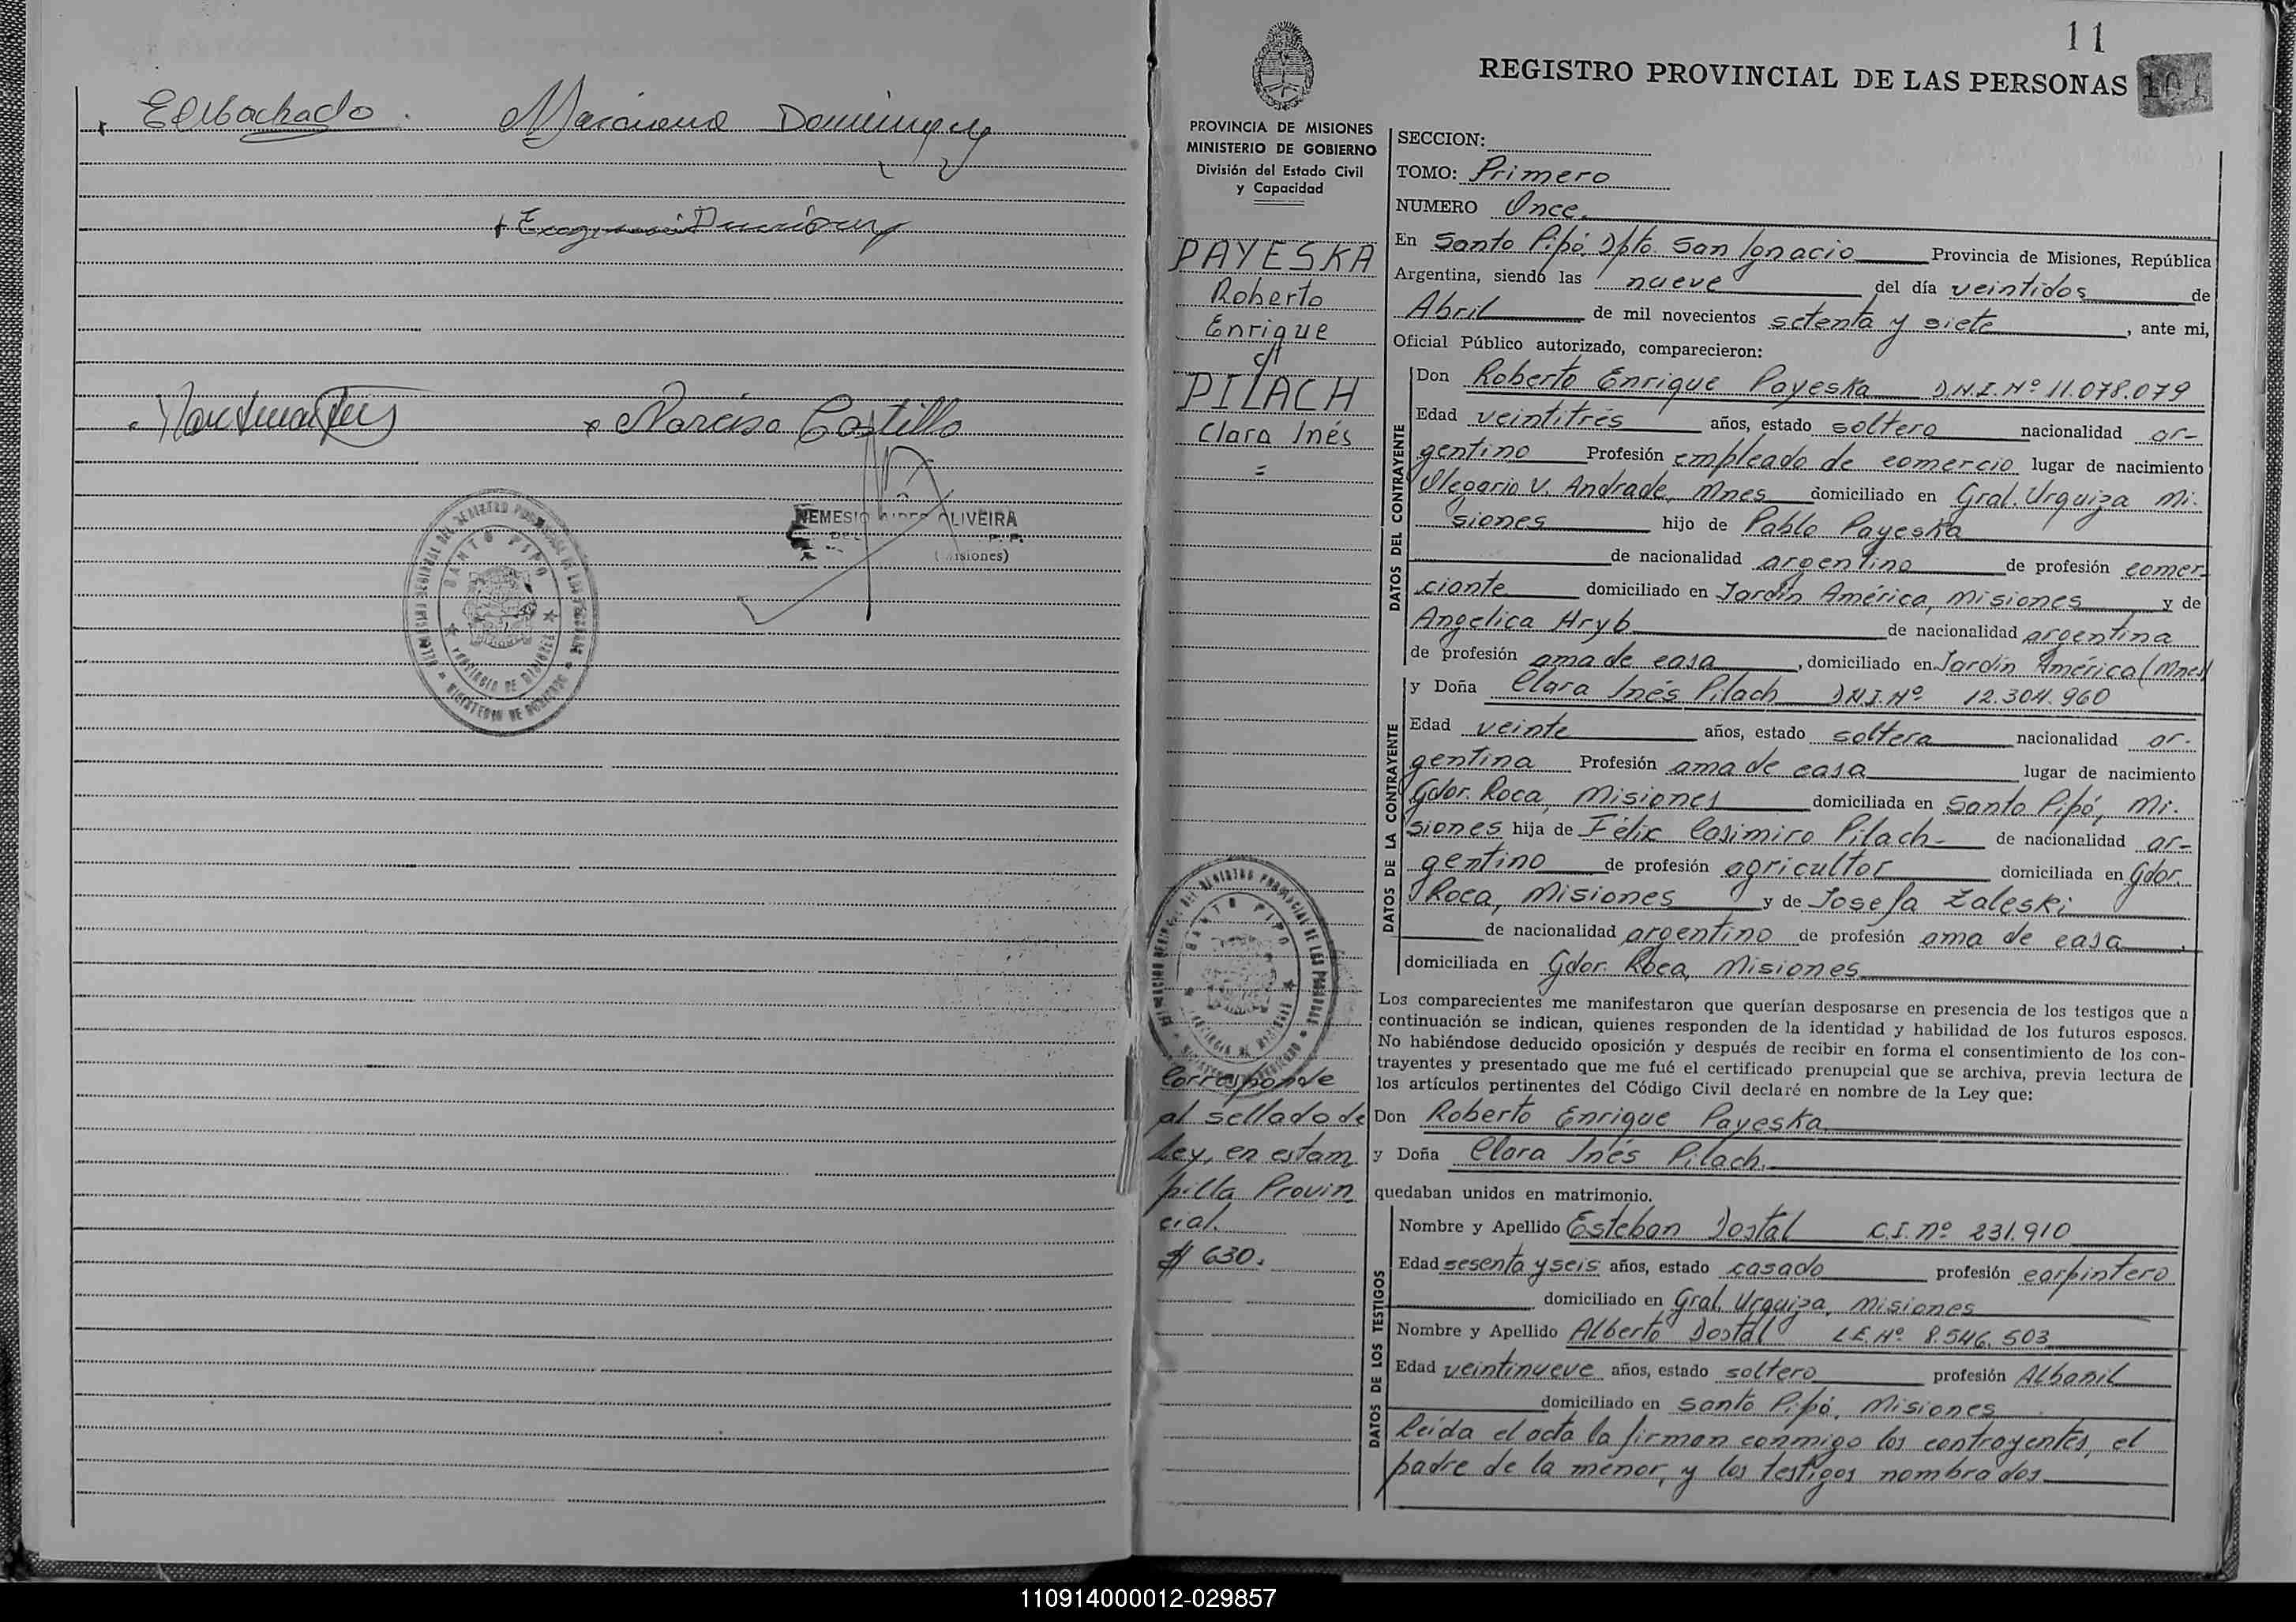 EdMachado. Mariana Dominguez
Narciso Castillo
NEMESIO OLIVEIRA
(Misiones)
SANTO PIPO
11
REGISTRO PROVINCIAL DE LAS PERSONAS 101
PROVINCIA DE MISIONES
MINISTERIO DE GOBIERNO
División del Estado Civil
y Capacidad
PAYESKA
Roberto
Enrique
c/
PILACH
Clara Inés
=
SANTO PIPO
Corresponde
al sellado de
Ley, en estam
pilla Provin
cial.
$ 630.
SECCION:
TOMO: Primero
NUMERO Once.
En Santo Pipó, Dpto. San Ignacio Provincia de Misiones, República
Argentina, siendo las nueve del día veintidos de
Abril de mil novecientos setenta y siete, ante mi,
Oficial Público autorizado, comparecieron:
DATOS DEL CONTRAYENTE
Don Roberto Enrique Payeska D.N.I. Nº 11.078.079
Edad veintitrés años, estado soltero nacionalidad ar-
gentino Profesión empleado de comercio lugar de nacimiento
Olegario V. Andrade, Mnes domiciliado en Gral. Urquiza Mi-
siones hijo de Pablo Payeska
de nacionalidad argentina de profesión comer-
ciante domiciliado en Jardín América, Misiones y de
Angelica Hryb de nacionalidad argentina
de profesión ama de casa, domiciliado en Jardín América (Mnes)
DATOS DE LA CONTRAYENTE
y Doña Clara Inés Pilach D.N.I. Nº 12.304.960
Edad veinte años, estado soltera nacionalidad ar-
gentina Profesión ama de casa lugar de nacimiento
Gdor. Roca, Misiones domiciliada en Santo Pipó, Mi-
siones hija de Félix Casimiro Pilach- de nacionalidad ar-
gentino de profesión agricultor domiciliada en Gdor.
Roca, Misiones y de Josefa Zaleski
de nacionalidad argentino de profesión ama de casa,
domiciliada en Gdor. Roca, Misiones
Los comparecientes me manifestaron que querían desposarse en presencia de los testigos que a
continuación se indican, quienes responden de la identidad y habilidad de los futuros esposos.
No habiéndose deducido oposición y después de recibir en forma el consentimiento de los con-
trayentes y presentado que me fué el certificado prenupcial que se archiva, previa lectura de
los artículos pertinentes del Código Civil declaré en nombre de la Ley que:
Don Roberto Enrique Payeska
y Doña Clara Inés Pilach.
quedaban unidos en matrimonio.
DATOS DE LOS TESTIGOS
Nombre y Apellido Esteban Dostal C.I. nº 231.910
Edad sesenta y seis años, estado casado profesión carpintero
domiciliado en Gral. Urquiza, Misiones
Nombre y Apellido Alberto Dostal L.E. Nº 8.546.503
Edad veintinueve años, estado soltero profesión Albanil
domiciliado en Santo Pipó, Misiones
Leída el acta la firman conmigo los contrayentes, el
padre de la menor, y los testigos nombrados
110914000012-029857